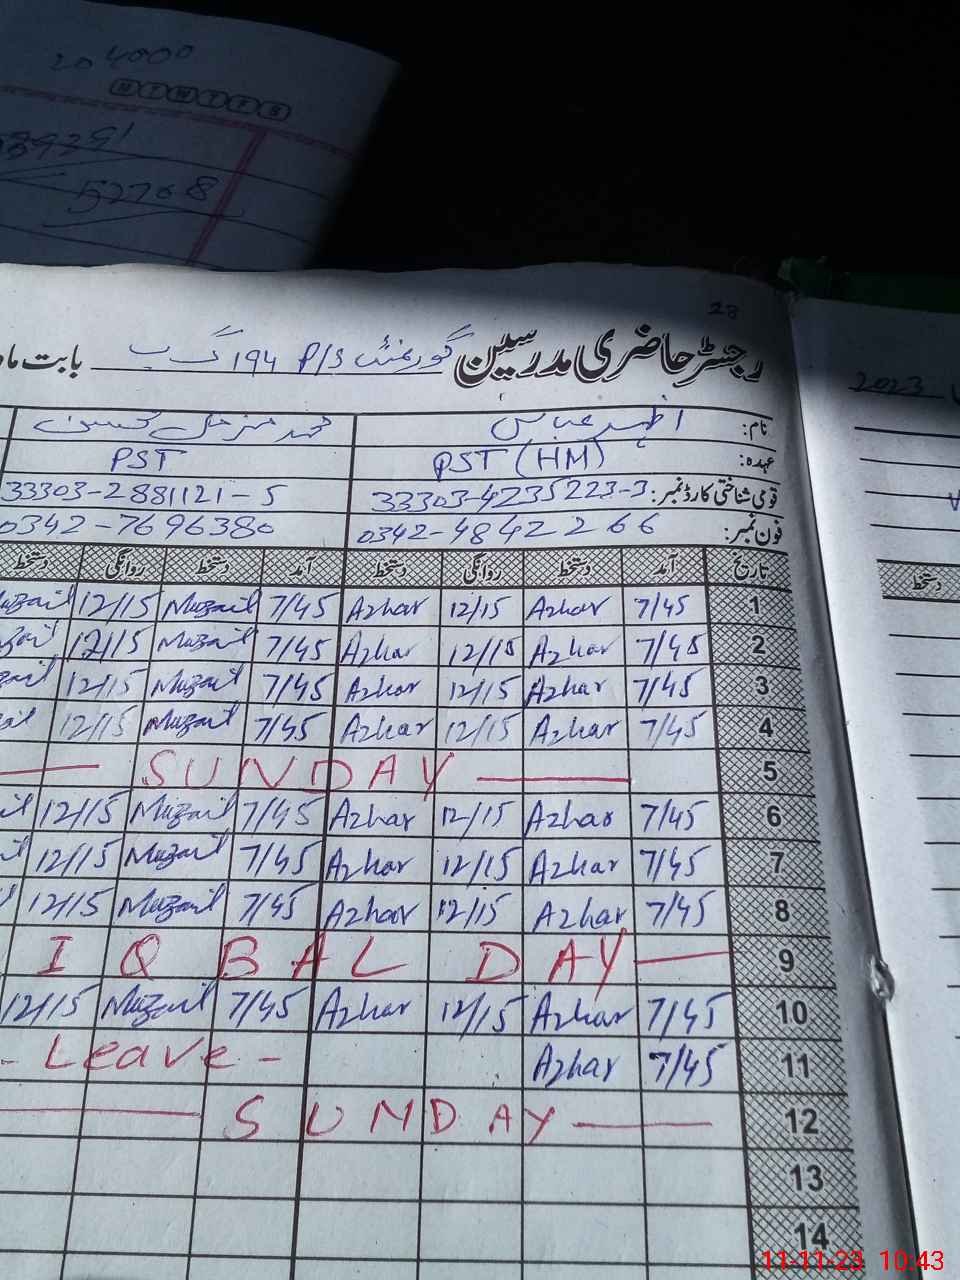 204000
M T W T F S
52768
28
رجسٹر حاضری مدرسین گورنمنٹ P/S 194 گ ب بابت ماہ
2023
نام: اظہر عباس محمد مزمل حسین
عہدہ: PST (HM) PST
قومی شناختی کارڈ نمبر: 33303-4235223-3 33303-2881121-5
فون نمبر: 0342-4842266 0342-7696380
تاریخ آمد دستخط روانگی دستخط آمد دستخط روانگی دستخط
دستخط
1 7/45 Azhar 12/15 Azhar 7/45 Muzail 12/15 Muzail
2 7/45 Azhar 12/15 Azhar 7/45 Muzail 12/15
3 7/45 Azhar 12/15 Azhar 7/45 Muzail 12/15
4 7/45 Azhar 12/15 Azhar 7/45 Muzail 12/15
5 SUNDAY
6 7/45 Azhar 12/15 Azhar 7/45 Muzail 12/15
7 7/45 Azhar 12/15 Azhar 7/45 Muzail 12/15
8 7/45 Azhar 12/15 Azhar 7/45 Muzail 12/15
9 IQBAL DAY
10 7/45 Azhar 12/15 Azhar 7/45 Muzail 12/15
11 7/45 Azhar - Leave -
12 SUNDAY
13
14
11-11-23 10:43